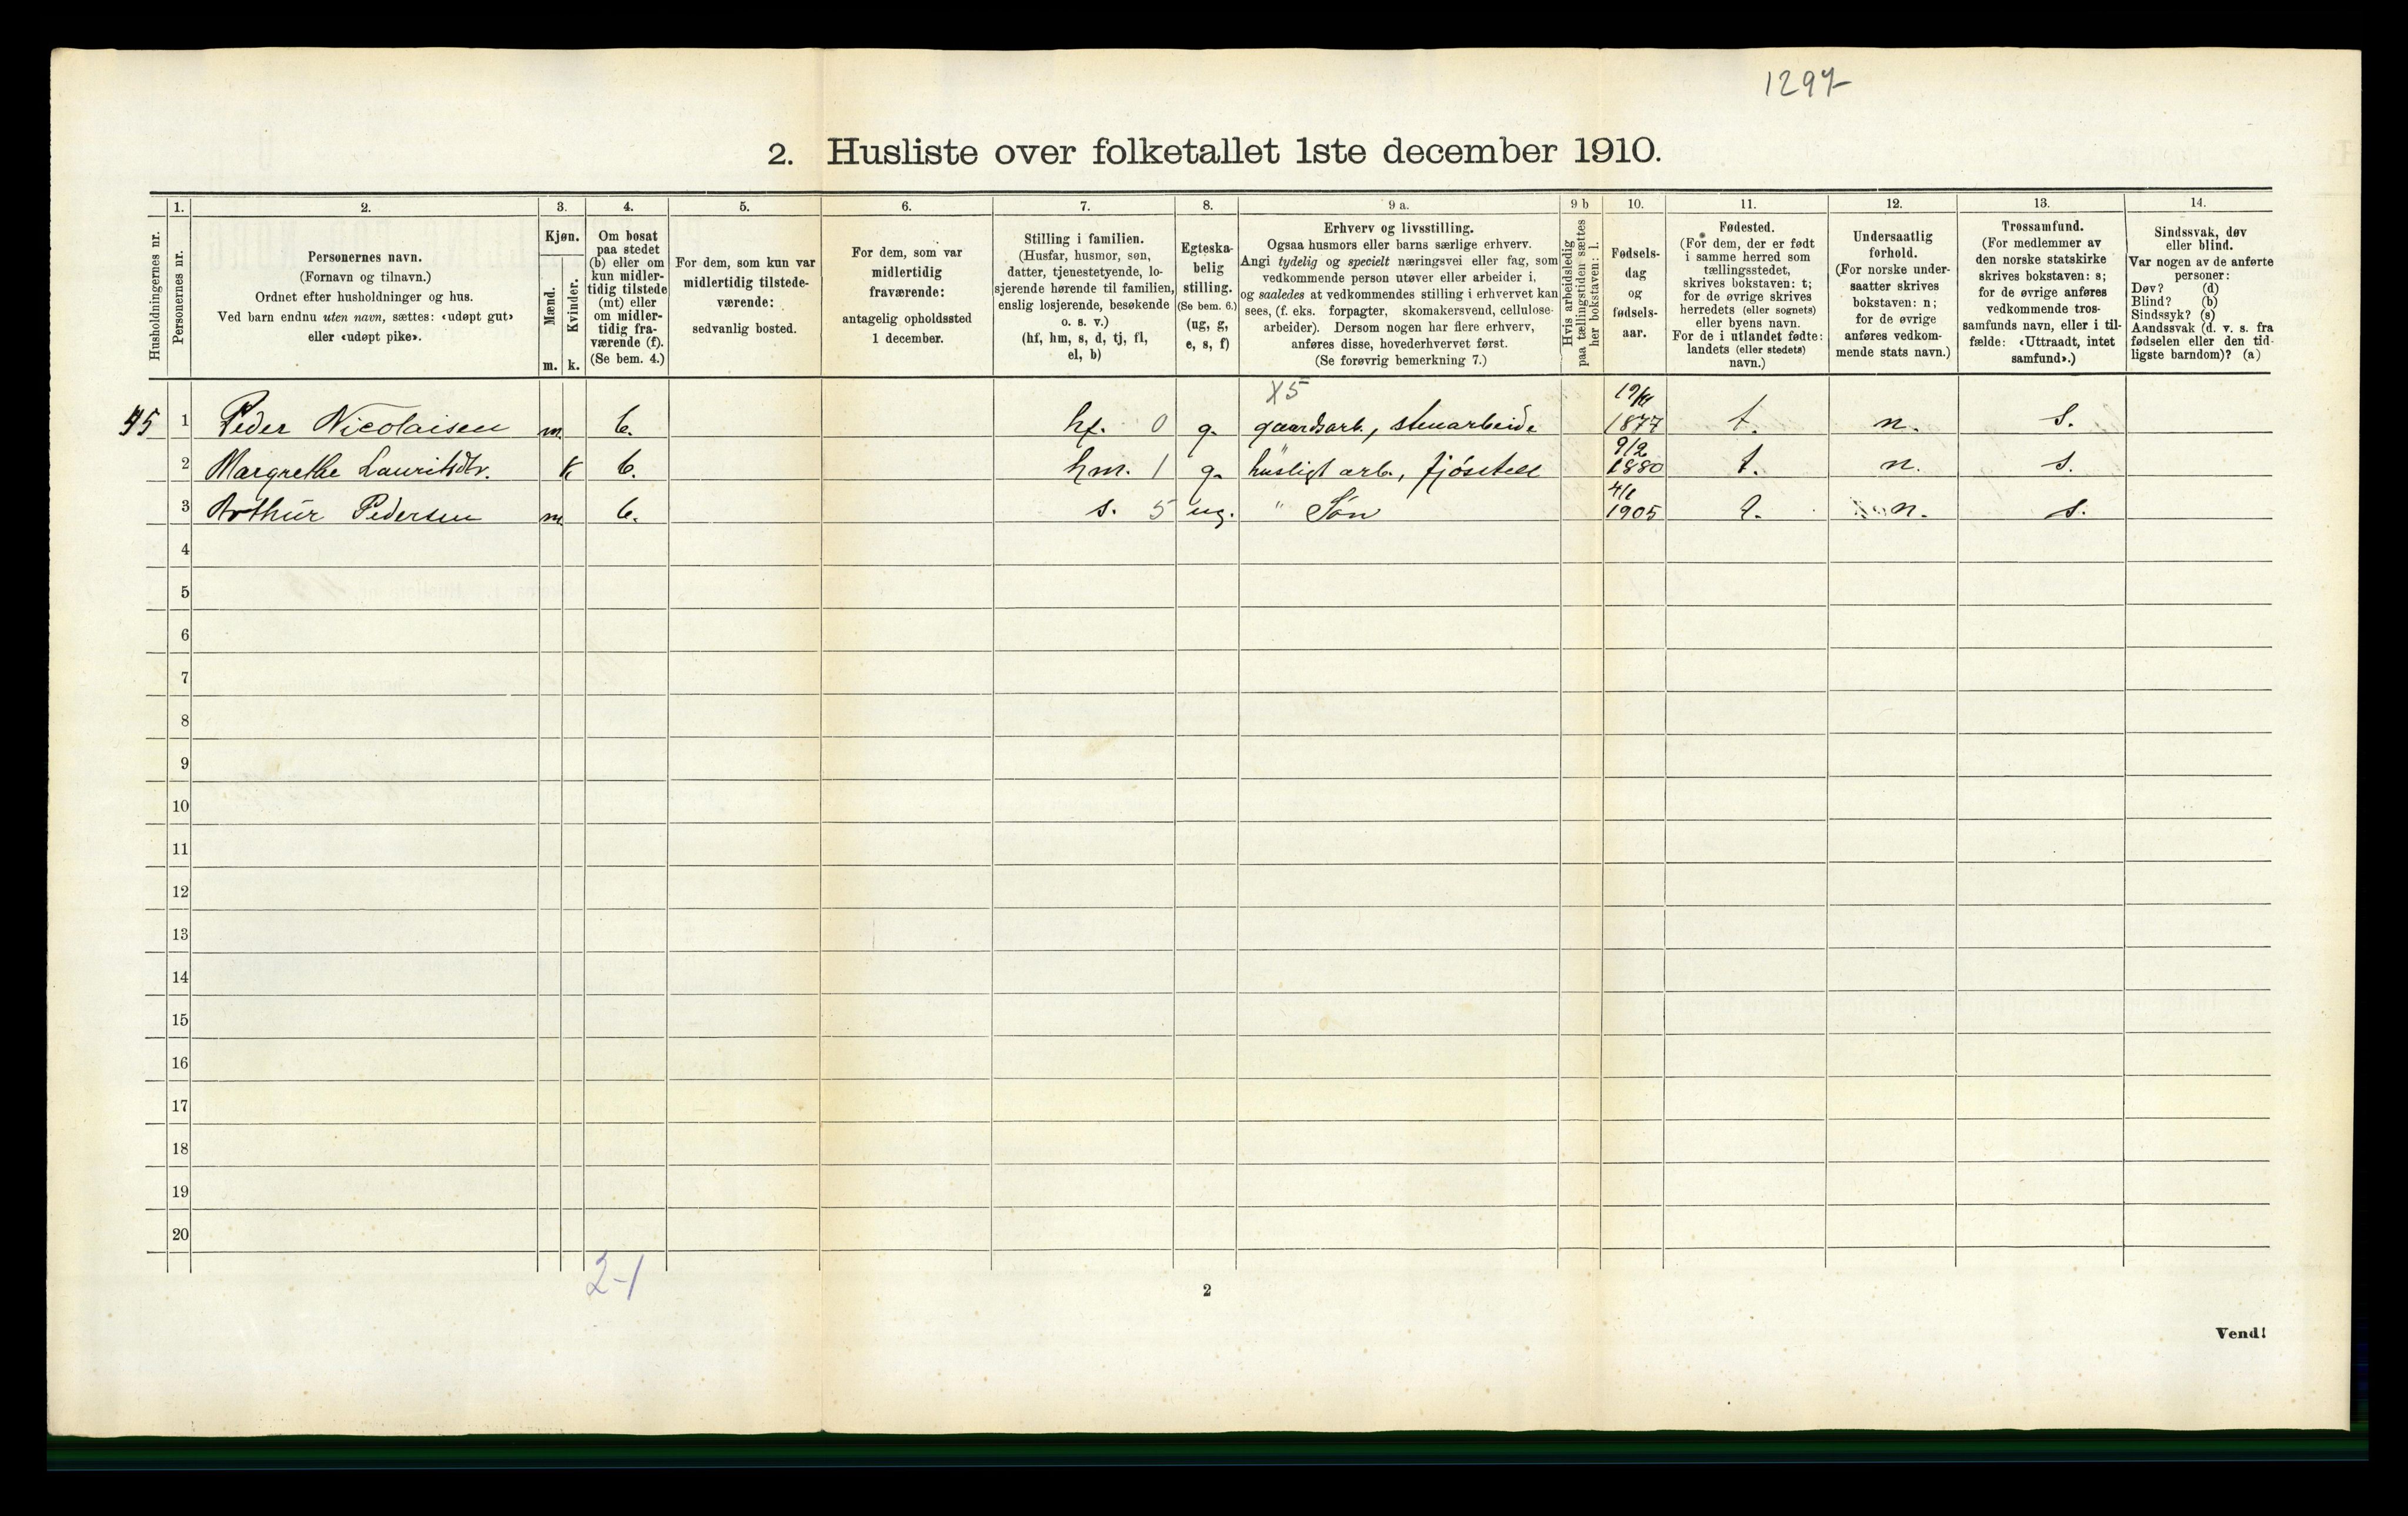 1297
2. Husliste over folketallet 1ste december 1910.
Husholdningernes nr.
1.
Personernes nr.
2.
Personernes navn.
(Fornavn og tilnavn.)
Ordnet efter husholdninger og hus.
Ved barn endnu uten navn, sættes: «udøpt gut»
eller «udøpt pike».
3.
Kjøn.
Mænd.
Kvinder.
m. k.
4.
Om bosat
paa stedet
(b) eller om
kun midler-
tidig tilstede
(mt) eller
om midler-
tidig fra-
værende (f).
(Se bem. 4.)
5.
For dem, som kun var
midlertidig tilstede-
værende:
sedvanlig bosted.
6.
For dem, som var
midlertidig
fraværende:
antagelig opholdssted
1 december.
7.
Stilling i familien.
(Husfar, husmor, søn,
datter, tjenestetyende, lo-
sjerende hørende til familien,
enslig losjerende, besøkende
o. s. v.)
(hf, hm, s, d, tj, fl,
el, b)
8.
Egteska-
belig
stilling.
(Se bem. 6.)
(ug, g,
e, s, f)
9 a.
Erhverv og livsstilling.
Ogsaa husmors eller barns særlige erhverv.
Angi tydelig og specielt næringsvei eller fag, som
vedkommende person utøver eller arbeider i,
og saaledes at vedkommendes stilling i erhvervet kan
sees, (f. eks. forpagter, skomakersvend, cellulose-
arbeider). Dersom nogen har flere erhverv,
anføres disse, hovederhvervet først.
(Se forøvrig bemerkning 7.)
9 b
Hvis arbeidsledig
paa tællingstiden sættes
her bokstaven: l.
10.
Fødsels-
dag
og
fødsels-
aar.
11.
Fødested.
(For dem, der er født
i samme herred som
tællingsstedet,
skrives bokstaven: t;
for de øvrige skrives
herredets (eller sognets)
eller byens navn.
For de i utlandet fødte:
landets (eller stedets)
navn.)
12.
Undersaatlig
forhold.
(For norske under-
saatter skrives
bokstaven: n;
for de øvrige
anføres vedkom-
mende stats navn.)
13.
Trossamfund.
(For medlemmer av
den norske statskirke
skrives bokstaven: s;
for de øvrige anføres
vedkommende tros-
samfunds navn, eller i til-
fælde: «Uttraadt, intet
samfund».)
14.
Sindssvak, døv
eller blind.
Var nogen av de anførte
personer:
Døv? (d)
Blind? (b)
Sindssyk? (s)
Aandssvak (d. v. s. fra
fødselen eller den tid-
ligste barndom)? (a)
X5
1 Peder Nicolaisen m. b. hf. 0 g. gaardsarb., stenarbeide 1877 t. n. s.
9/2
2 Margrethe Lauritsdtr. k b. hm. 1 g. husligt arb., fjösstell 1880 t. n. s.
3 Arthur Pedersen m b. s. 5 ug. " Søn 1905 n. s.
4
5
6
7
8
9
10
11
12
13
14
15
16
17
18
19
20
2-1
2
Vend!